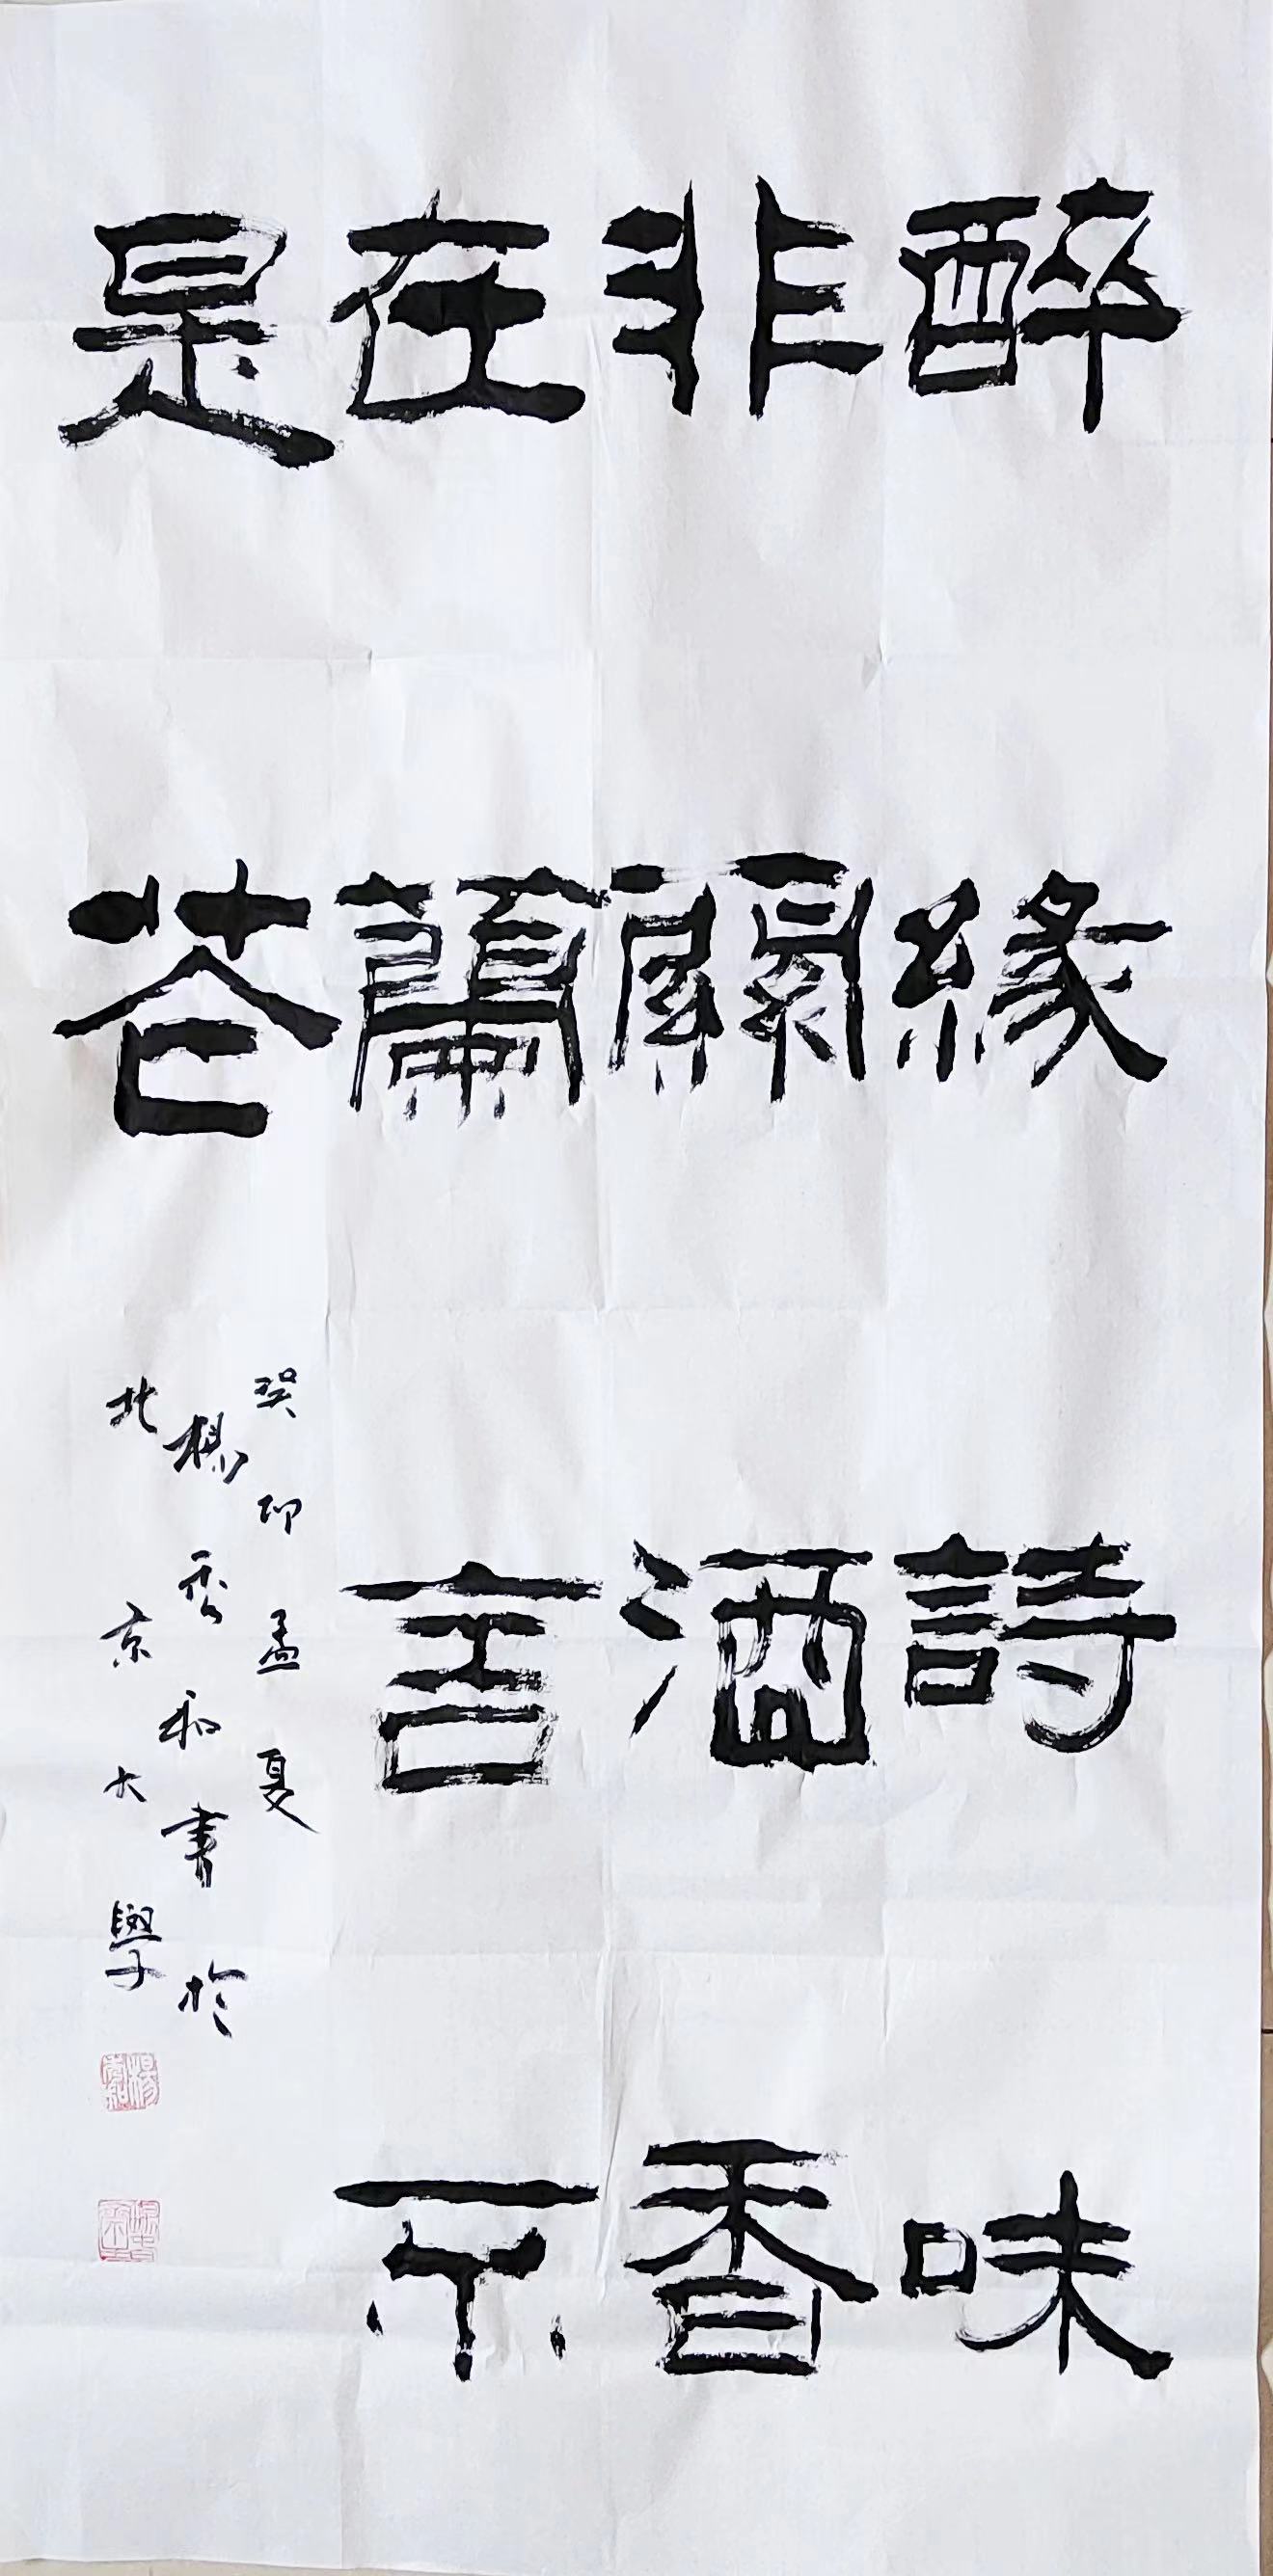 醉緣詩味
非關酒香
在蘭言不
是花
癸卯孟夏
楊秀和書於
北京大學
楊秀和